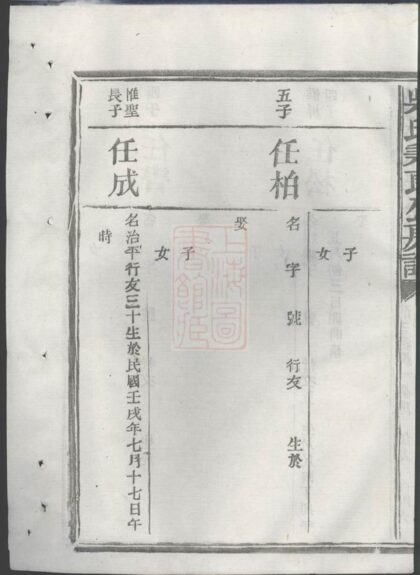 五子
任柏
名 字 號 行友 生於
娶
子
女
惟聖長子
任成
名治平行友三十生於民國壬戌年七月十七日午
時
子
女
上海圖書館藏